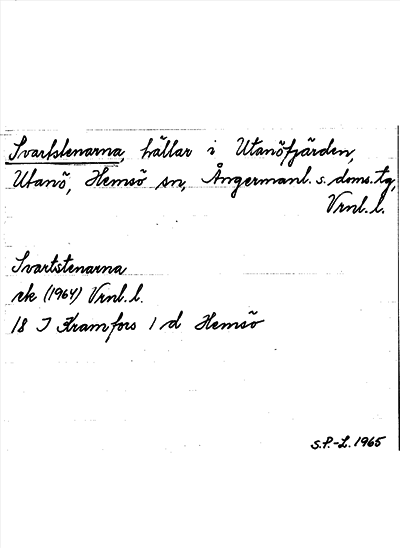 Svartstenarna, hällar i Utanöfjärden,
Utanö, Hemsö sn, Ångermanl. s. doms. tg,
Vrnl. l.
Svartstenarna
ek (1964) Vrnl. l.
18 I Kramfors 1 d Hemsö
S.P.-L. 1965